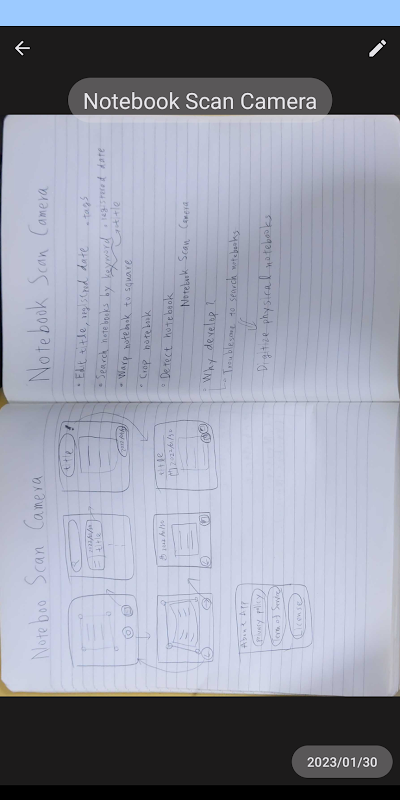 Notebook Scan Camera
Notebook Scan Camera
• Edit title, registered date • tags
• Search notebooks by keyword • registered date
• Warp notebook to square
• Crop notebook
• Detect notebook
Notebook Scan Camera
Why develop?
Troublesome to search notebooks
Digitize physical notebooks
Noteboo Scan Camera
title
title
title
About App
Privacy policy
Term of Service
License
2023/01/30